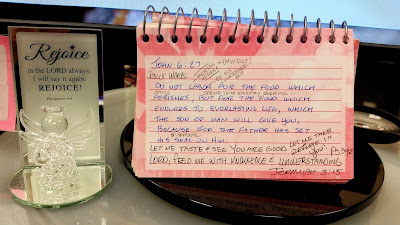 Rejoice
in the LORD always.
I will say it again:
REJOICE!
JOHN 6:27
DO NOT LABOR FOR THE FOOD WHICH
PERISHES, BUT FOR THE FOOD WHICH
ENDURES TO EVERLASTING LIFE, WHICH
THE SON OF MAN WILL GIVE YOU,
BECAUSE GOD THE FATHER HAS SET
HIS SEAL ON HIM.
OF APPROVAL
LET ME TASTE & SEE YOU ARE GOOD
LET ME TAKE
REFUGE IN
YOU!
LORD, FEED ME WITH KNOWLEDGE & UNDERSTANDING
JEREMIAH 3:15